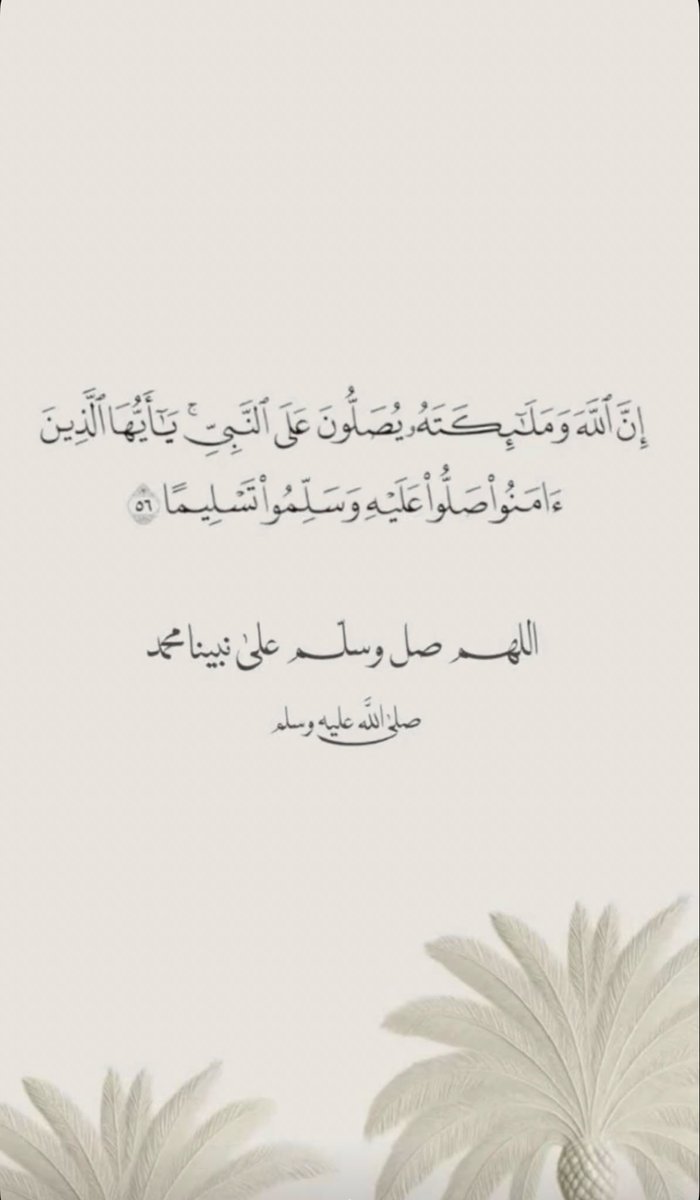 إِنَّ ٱللَّهَ وَمَلَـٰٓئِكَتَهُۥ يُصَلُّونَ عَلَى ٱلنَّبِىِّ ۚ يَـٰٓأَيُّهَا ٱلَّذِينَ
ءَامَنُوا۟ صَلُّوا۟ عَلَيْهِ وَسَلِّمُوا۟ تَسْلِيمًا ٥٦
اللهم صل وسلّم علىٰ نبينا محمد
صلى اللَّه عليه وسلم